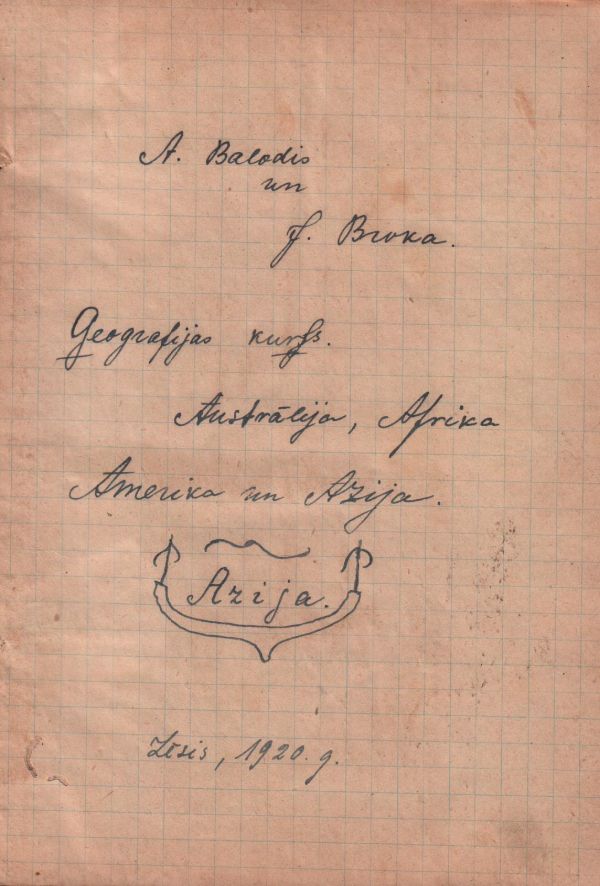 A. Balodis
un
J. Broka.
Geografijas kurſs.
Austrālija, Afrika
Amerika un Azija.
Azija.
Zēsis, 1920. g.